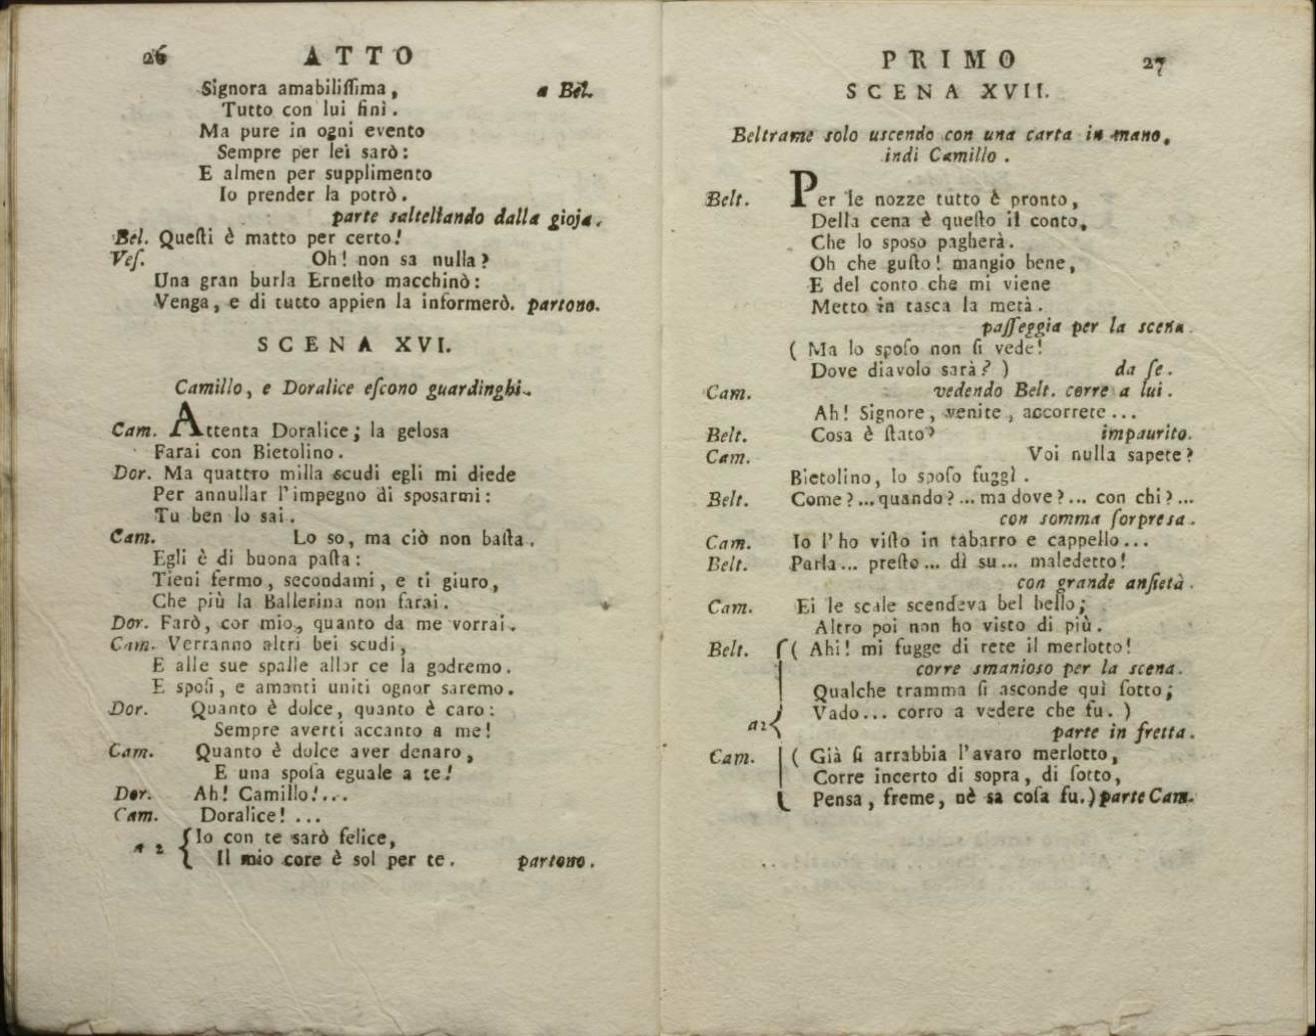 26 ATTO
Signora amabiliſſima, a Bel.
Tutto con lui finì.
Ma pure in ogni evento
Sempre per lei sarò:
E almen per supplimento
Io prender la potrò.
parte saltellando dalla gioja.
Bel. Queſti è matto per certo!
Veſ. Oh! non sa nulla?
Una gran burla Erneſto macchinò:
Venga, e di tutto appien la informerò. partono.
SCENA XVI.
Camillo, e Doralice eſcono guardinghi.
Cam. Attenta Doralice; la gelosa
Farai con Bietolino.
Dor. Ma quattro milla scudi egli mi diede
Per annullar l'impegno di sposarmi:
Tu ben lo sai.
Cam. Lo so, ma ciò non baſta.
Egli è di buona paſta:
Tieni fermo, secondami, e ti giuro,
Che più la Ballerina non farai.
Dor. Farò, cor mio, quanto da me vorrai.
Cam. Verranno altri bei scudi,
E alle sue spalle allor ce la godremo.
E spoſi, e amanti uniti ognor saremo.
Dor. Quanto è dolce, quanto è caro:
Sempre averti accanto a me!
Cam. Quanto è dolce aver denaro,
E una spoſa eguale a te!
Dor. Ah! Camillo!...
Cam. Doralice! ...
a 2 { Io con te sarò felice,
Il mio core è sol per te. partono.
PRIMO 27
SCENA XVII.
Beltrame solo uscendo con una carta in mano,
indi Camillo.
Belt. Per le nozze tutto è pronto,
Della cena è queſto il conto,
Che lo sposo pagherà.
Oh che guſto! mangio bene,
E del conto che mi viene
Metto in tasca la metà.
paſſeggia per la scena.
( Ma lo spoſo non ſi vede!
Dove diavolo sarà? ) da ſe.
Cam. vedendo Belt. corre a lui.
Ah! Signore, venite, accorrete...
Belt. Cosa è ſtato? impaurito.
Cam. Voi nulla sapete?
Bietolino, lo spoſo fuggì.
Belt. Come?...quando?...ma dove?... con chi?...
con somma ſorpresa.
Cam. Io l'ho viſto in tabarro e cappello...
Belt. Parla... preſto... dì su... maledetto!
con grande anſietà.
Cam. Ei le scale scendeva bel bello;
Altro poi non ho visto di più.
Belt. ( Ahi! mi fugge di rete il merlotto!
corre smanioso per la scena.
Qualche tramma ſi asconde quì ſotto;
a 2 { Vado... corro a vedere che fu. )
parte in fretta.
Cam. ( Già ſi arrabbia l'avaro merlotto,
Corre incerto di sopra, di ſotto,
Pensa, freme, nè sa coſa fu.) parte Cam.